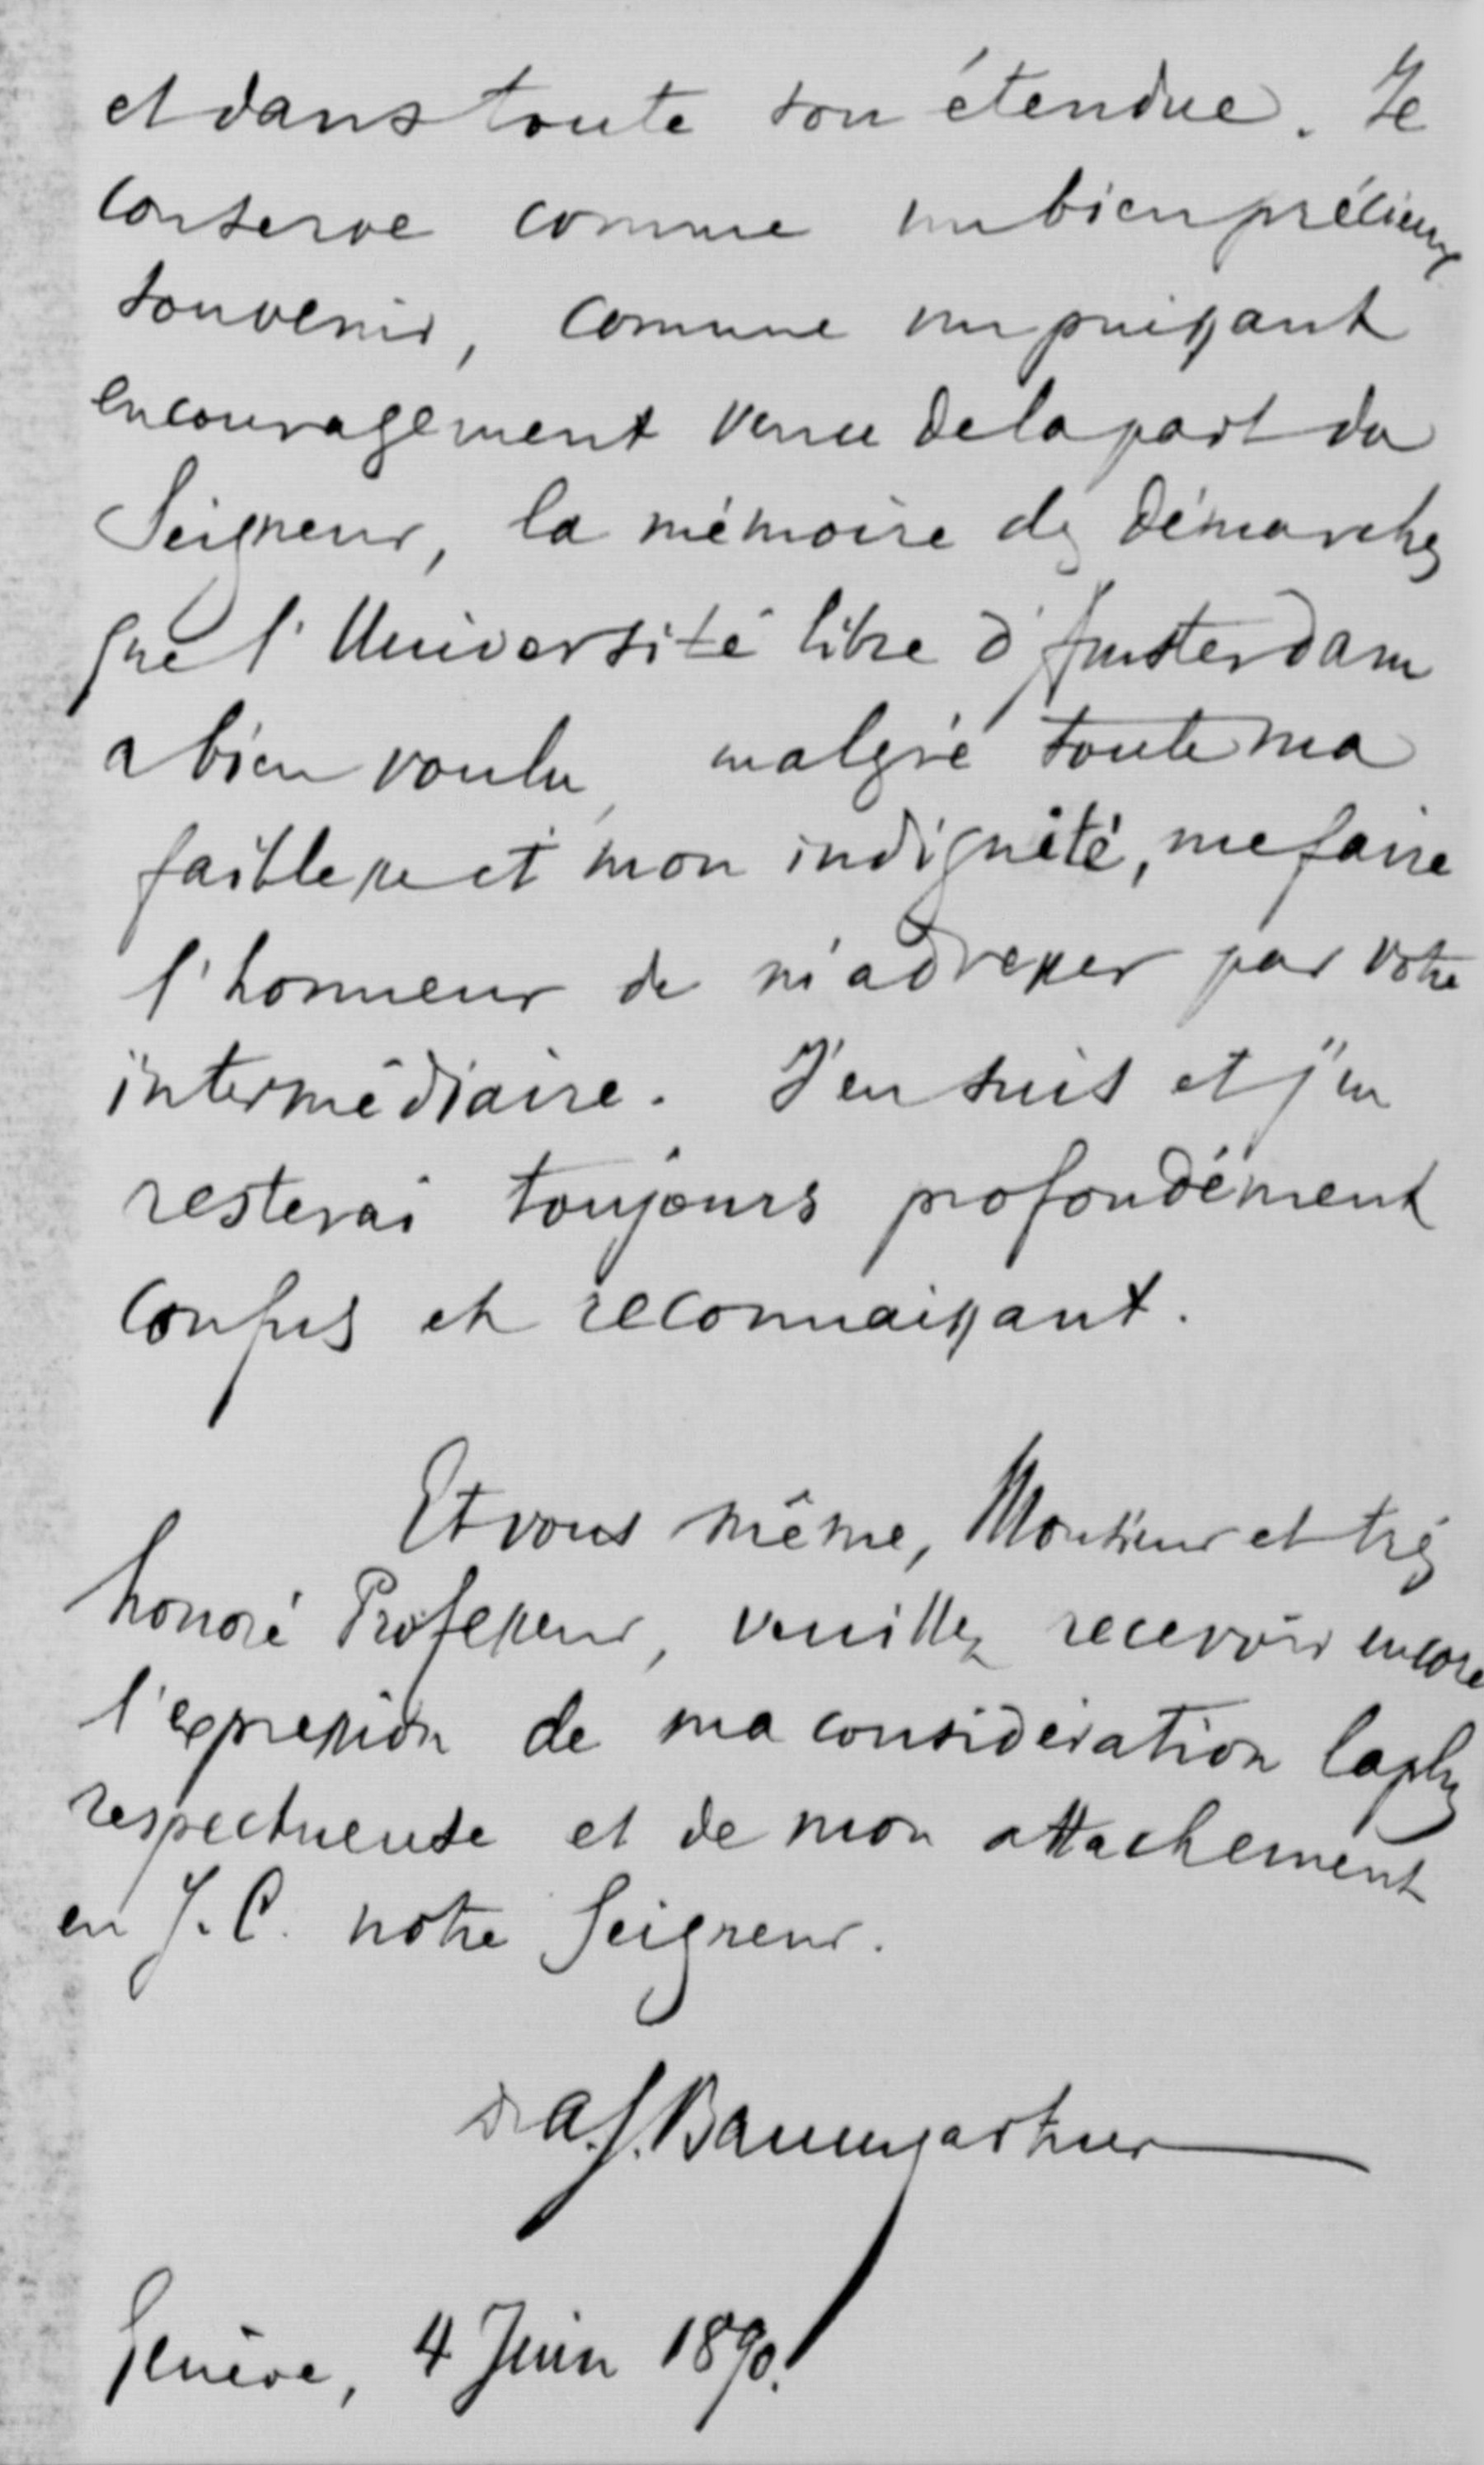 et dans toute son étendue. Je
conserve comme un bien précieux
souvenir, comme un puissant
encouragement venu de la part du
Seigneur, la mémoire des démarches
que l'Université libre d'Amsterdam
a bien voulu, malgré toute ma
faiblesse et mon indignité, me faire
l'honneur de m'adresser par votre
intermédiaire. J'en suis et j'en
resterai toujours profondément
confus et reconnaissant.
Et vous même, Monsieur et très
honoré Professeur, veuillez recevoir encore
l'expression de ma considération la plus
respectueuse et de mon attachement
en J. C. notre Seigneur.
Dr A. J. Baumgartner
Genève, 4 Juin 1890.